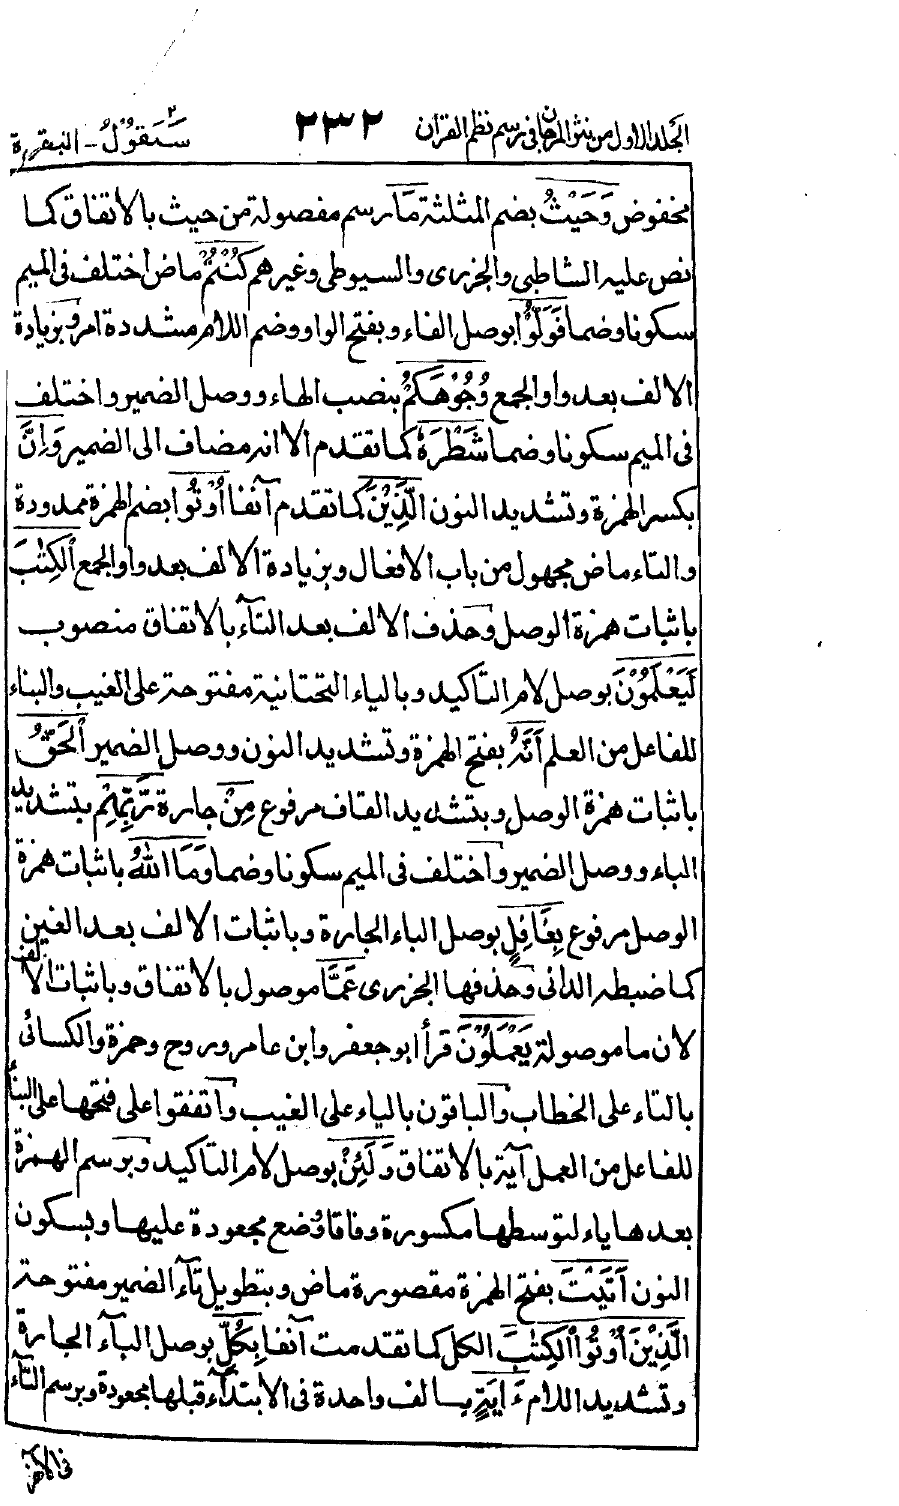 المجلد الاول من نثر المرجان فى رسم نظم القران ٢٣٢ سَيَقُوْلُ ٢ - البقرة
مخفوض وَحَيْثُ بضم المثلثة مَا رسم مفصولة من حيث بالاتفاق كما
نص عليه الشاطبى والجزرى والسيوطى وغيرهم كُنْتُمْ ماض اختلف فى الميم
سكونا وضما فَوَلُّوْا بوصل الفاء وبفتح الواو وضم اللام مشددة امر وبزيادة
الالف بعد واو الجمع وُجُوْهَكُمْ بنصب الهاء ووصل الضمير واختلف
فى الميم سكونا وضما شَطْرَهٗ كما تقدم الا انه مضاف الى الضمير وَاِنَّ
بكسر الهمزة وتشديد النون الَّذِيْنَ كما تقدم آنفا اُوْتُوا بضم الهمزة ممدودة
والتاء ماض مجهول من باب الافعال وبزيادة الالف بعد واو الجمع الْكِتٰبَ
باثبات همزة الوصل وحذف الالف بعد التآء بالاتفاق منصوب
لَيَعْلَمُوْنَ بوصل لام التاكيد وبالياء التحتانية مفتوحة على الغيب والبناء
للفاعل من العلم اَنَّهُ بفتح الهمزة وتشديد النون ووصل الضمير الْحَقُّ
باثبات همزة الوصل وبتشديد القاف مرفوع مِنْ جارة رَّبِّهِمْ بتشديد
الباء ووصل الضمير واختلف فى الميم سكونا وضما وَمَا اللّٰهُ باثبات همزة
الوصل مرفوع بِغَافِلٍ بوصل الباء الجارة وباثبات الالف بعد الغين
كما ضبطه الدانى وحذفها الجزرى عَمَّا موصول بالاتفاق وباثبات الالف
لان ما موصولة يَعْمَلُوْنَ قرأ ابو جعفر وابن عامر وروح وحمزة والكسائى
بالتاء على الخطاب والباقون بالياء على الغيب واتفقوا على فتحها على البنآ
للفاعل من العمل آية بالاتفاق وَلَئِنْ بوصل لام التاكيد وبرسم الهمزة
بعدها ياء لتوسطها مكسورة وفاقا وضع مجعودة عليها وبسكون
النون اَتَيْتَ بفتح الهمزة مقصورة ماض وبتطويل تآء الضمير مفتوحة
الَّذِيْنَ اُوْتُوا الْكِتٰبَ الكل كما تقدمت آنفا بِكُلِّ بوصل البآء الجارة
وتشديد اللام ءَايَةٍ بالف واحدة فى الابتدآء قبلها مجعودة وبرسم التآء
فى الآخر